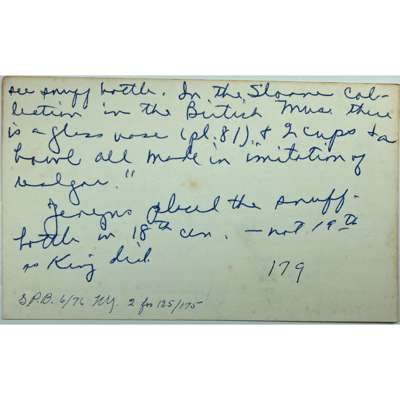 see snuff bottle. In the Sloane col-
lection in the British Muse there
is a glass vase (pl. 81) & 2 cups & a
bowl all made in "imitation of
realgar."
Jenyns placed the snuff-
bottle in 18th cen. – not 19th
as King did.
179
S.P.B. 6/76 N.Y. 2 for 125/175